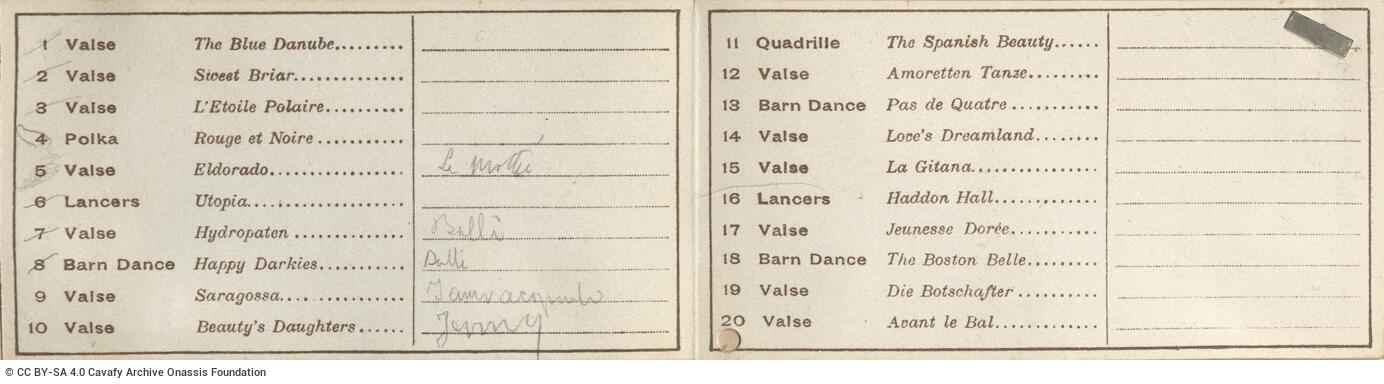 1 Valse The Blue Danube.........
2 Valse Sweet Briar..............
3 Valse L'Etoile Polaire..........
4 Polka Rouge et Noire ...........
5 Valse Eldorado................. Le
6 Lancers Utopia....................
7 Valse Hydropaten ..............
8 Barn Dance Happy Darkies...........
9 Valse Saragossa................
10 Valse Beauty's Daughters ...... Jenny
11 Quadrille The Spanish Beauty......
12 Valse Amoretten Tanze.........
13 Barn Dance Pas de Quatre ...........
14 Valse Love's Dreamland........
15 Valse La Gitana................
16 Lancers Haddon Hall.............
17 Valse Jeunesse Dorée...........
18 Barn Dance The Boston Belle.........
19 Valse Die Botschafter ..........
20 Valse Avant le Bal.............
© CC BY-SA 4.0 Cavafy Archive Onassis Foundation